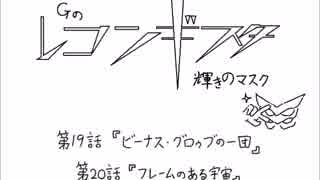 Gの
レコンギスタ
輝きのマスク
第19話『ビーナス・グロゥブの一団』
第20話『フレームのある宇宙』